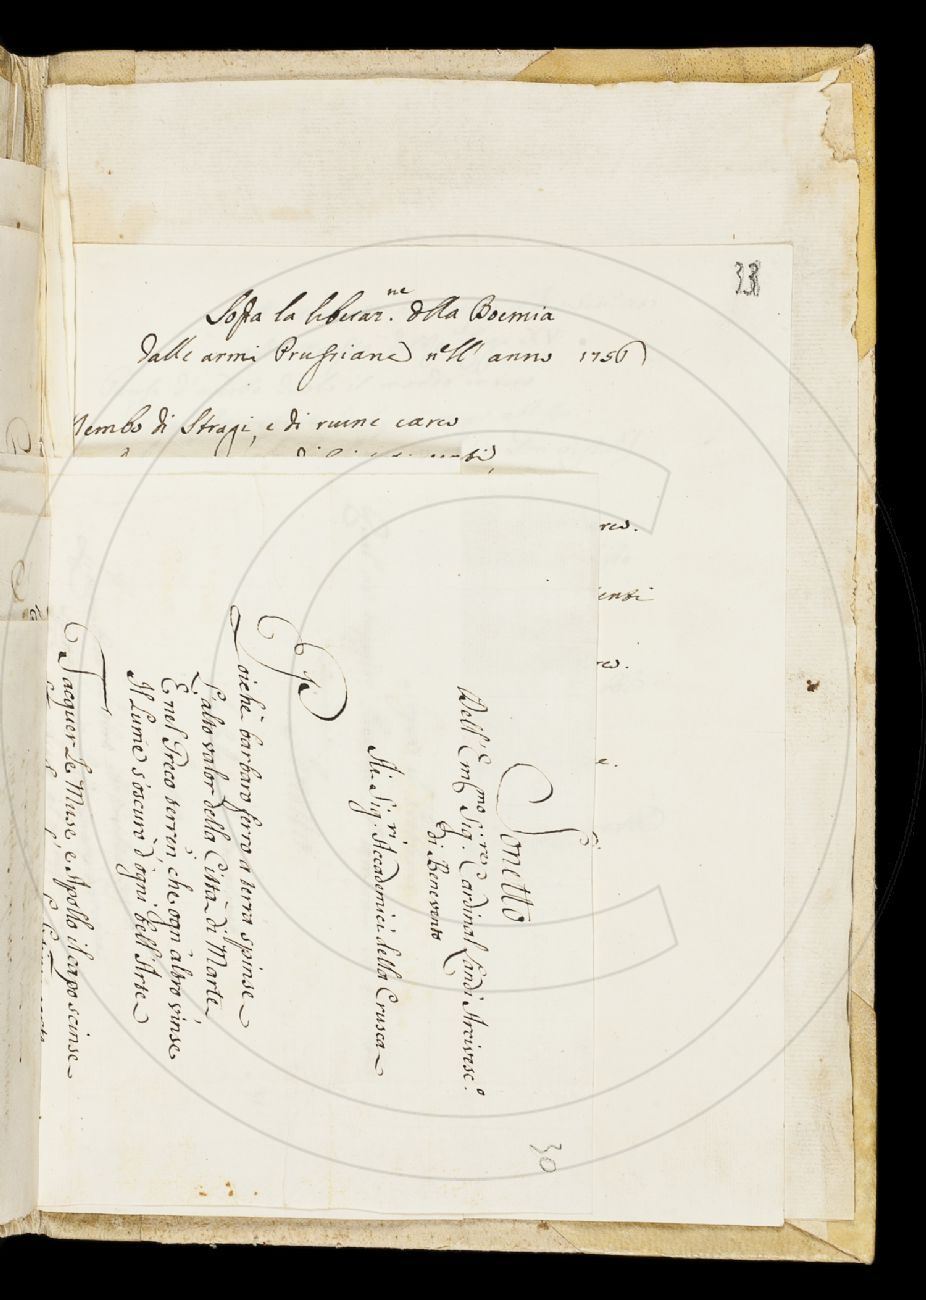 33
Sopra la liberaz.ne della Boemia
dalle armi Prussiane nell' anno 1756
Nembo di Stragi, e di ruine carco
rco.
enti
rco.
e.
Sonetto
Dell' Em.mo Sig.re Cardinal Landi Arcivesc.o
di Benevento
Ai Sig.ri Accademici della Crusca
Poichè barbaro ferro a terra spinse
L'alto valor della Città di Marte,
E nel Greco terren, che ogn'altro vinse
Il Lume s'oscurò d'ogni bell'Arte
Tacquer le Muse e Apollo il capo scinse
30